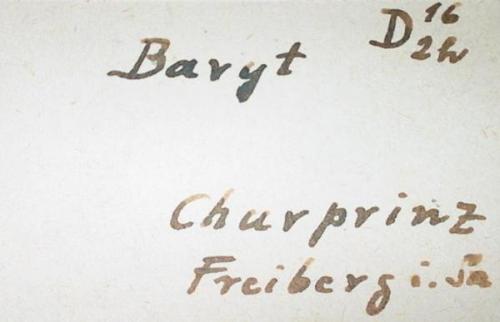 Baryt D 16
2h
Churprinz
Freiberg i. Sa